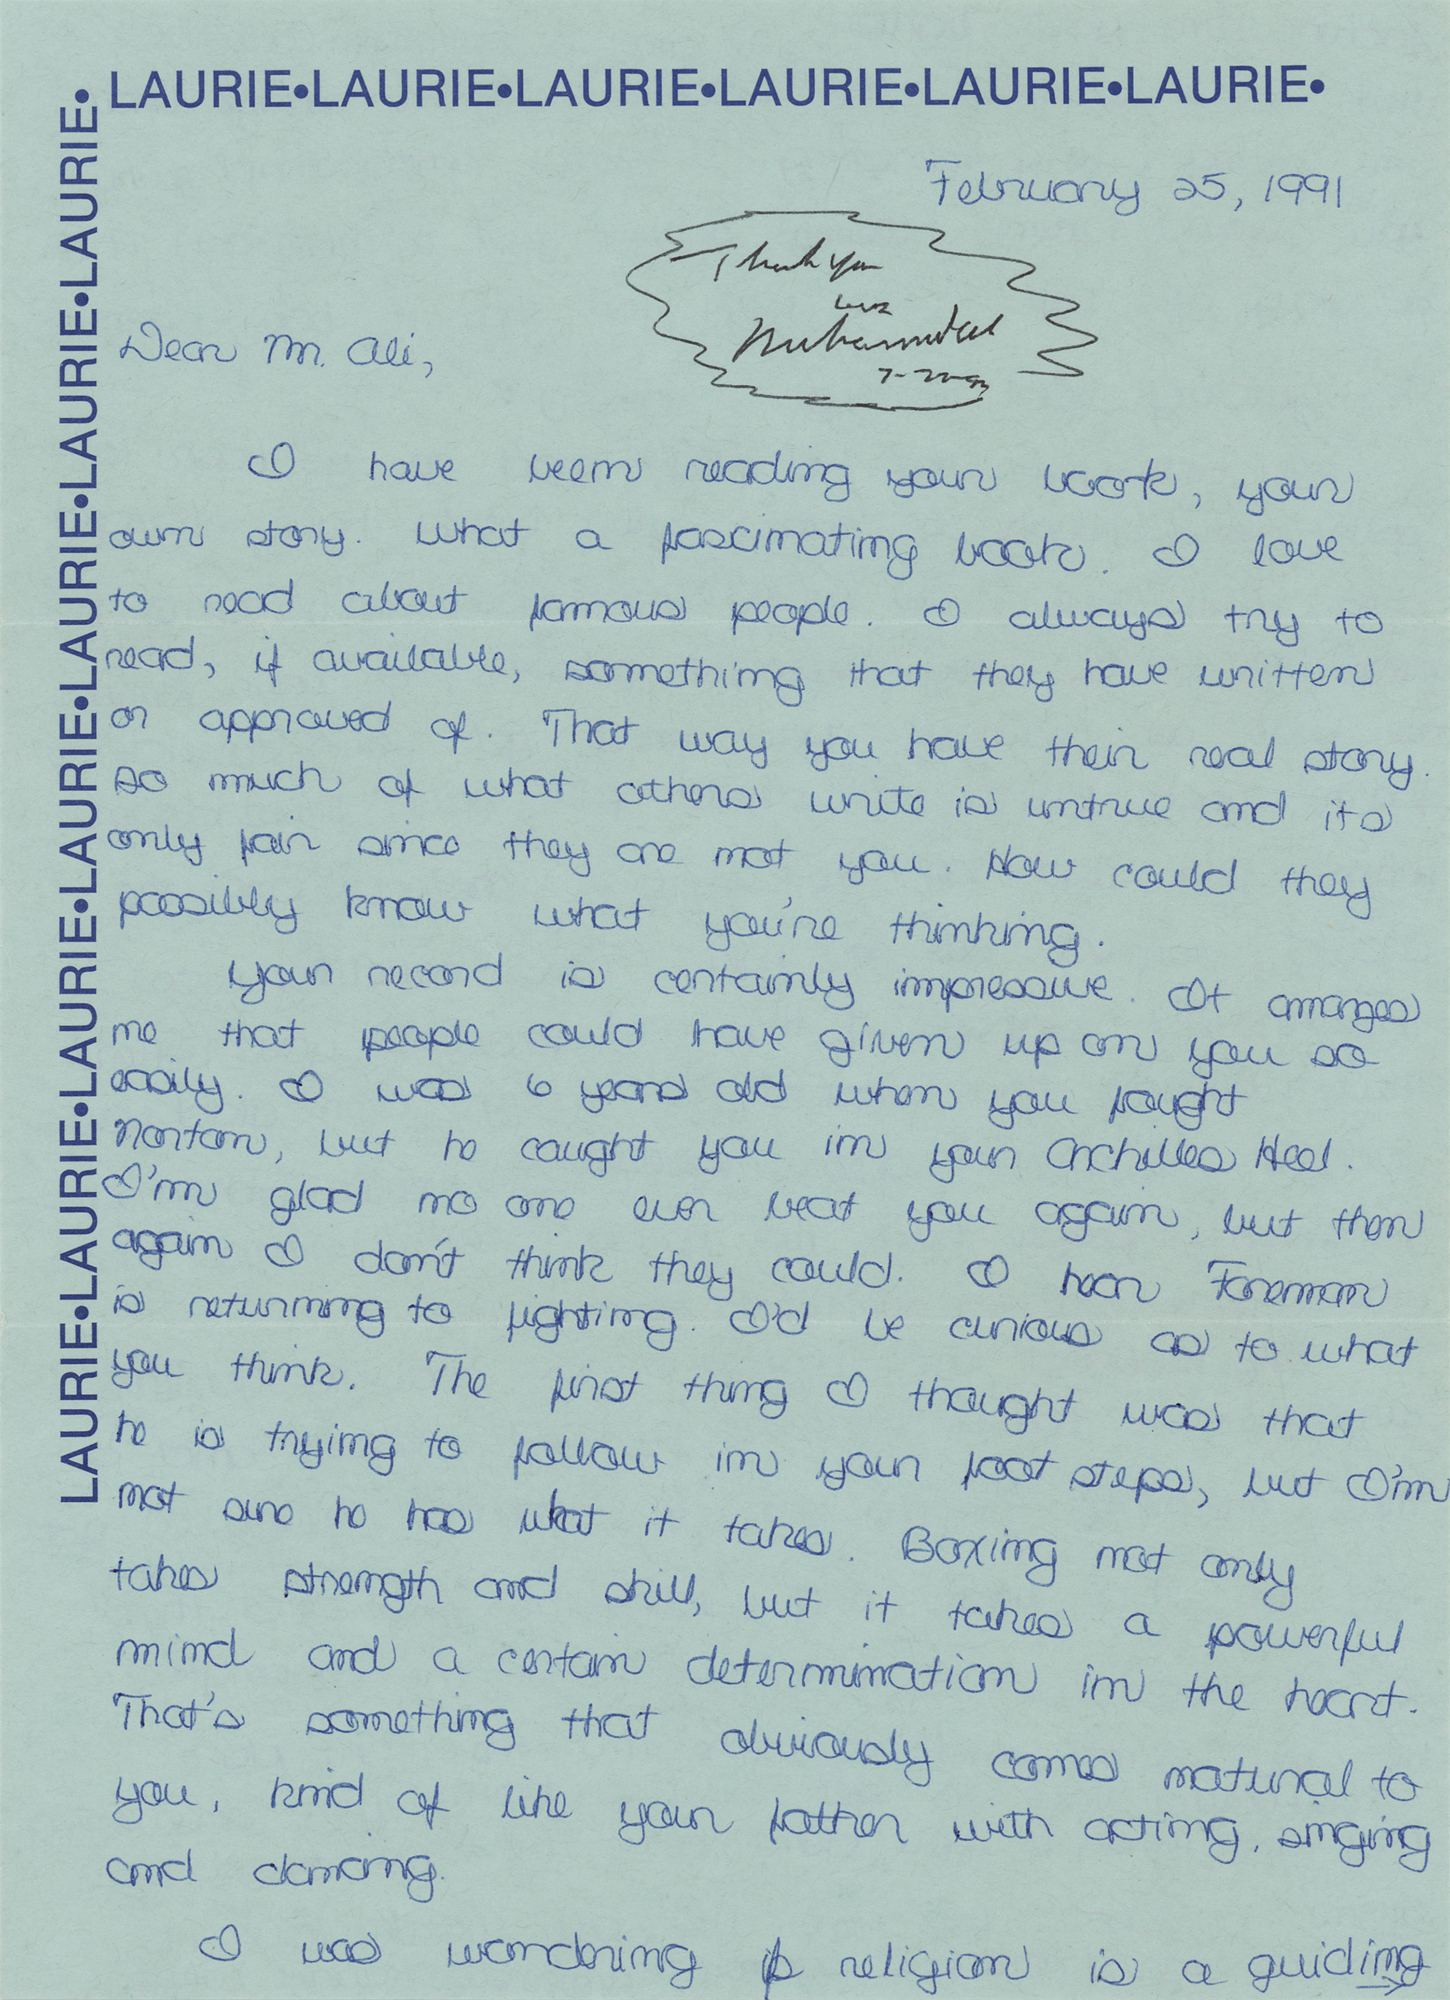 LAURIE•LAURIE•LAURIE•LAURIE•LAURIE•LAURIE•
LAURIE•LAURIE•LAURIE•LAURIE•LAURIE•LAURIE•LAURIE•
February 25, 1991
Thank you
Love
Muhammad Ali
Dear Mr. Ali,
I have been reading your book, your
own story. What a fascinating book. I love
to read about famous people. I always try to
read, if available, something that they have written
or approved of. That way you have their real story.
So much of what others write is untrue and its
only fair since they are not you. How could they
possibly know what you're thinking.
Your record is certainly impressive. It amazes
me that people could have given up on you so
easily. I was 6 years old when you fought
Norton, but he caught you in your Archilles Heel.
I'm glad no one ever beat you again, but then
again I don't think they could. I hear Foreman
is returning to fighting. I'd be curious as to what
you think. The first thing I thought was that
he is trying to follow in your foot steps, but I'm
not sure he has what it takes. Boxing not only
takes strength and skill, but it takes a powerful
mind and a certain determination in the heart.
That's something that obviously comes natural to
you, kind of like your father with acting, singing
and dancing.
I was wondering if religion is a guiding